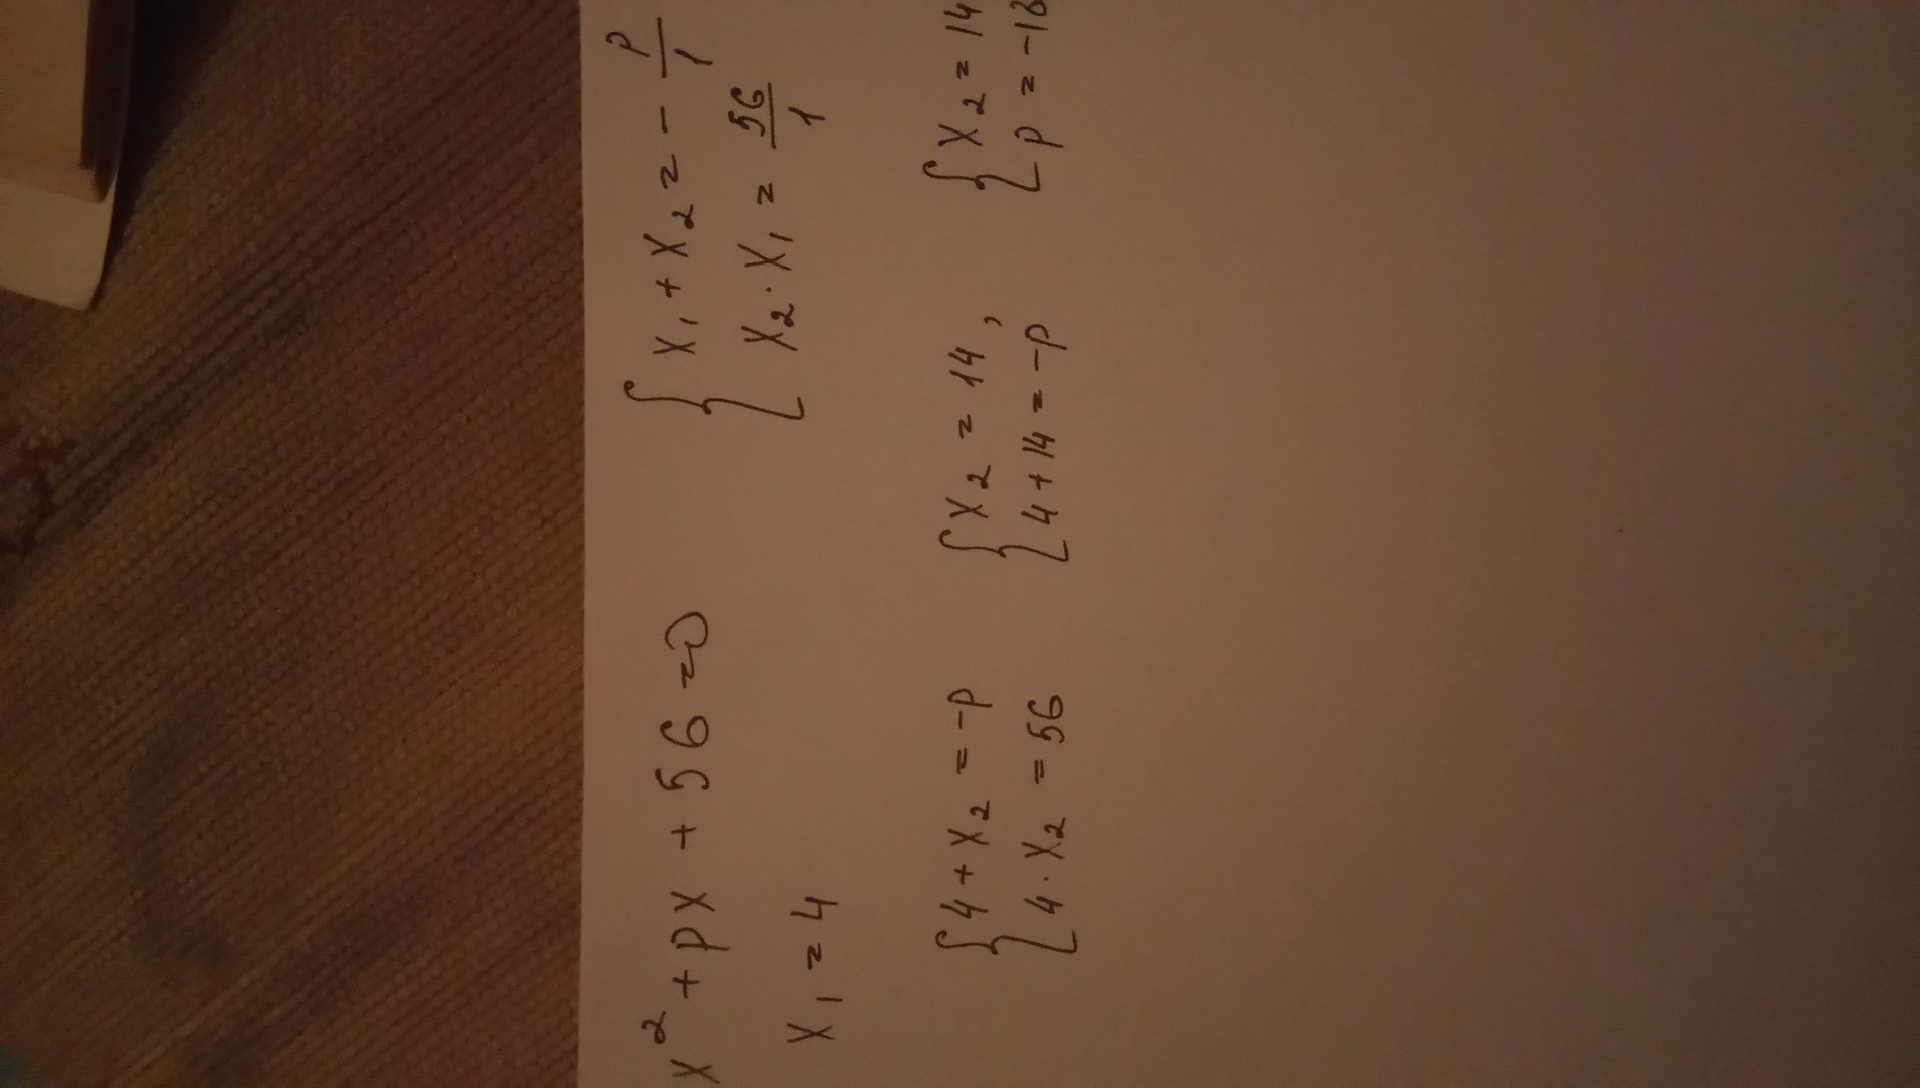 x² + px + 56 = 0
x₁ = 4
{ x₁ + x₂ = - p/1
{ x₂ · x₁ = 56/1
{ 4 + x₂ = -p
{ 4 · x₂ = 56
{ x₂ = 14,
{ 4 + 14 = -p
{ x₂ = 14
{ p = -18